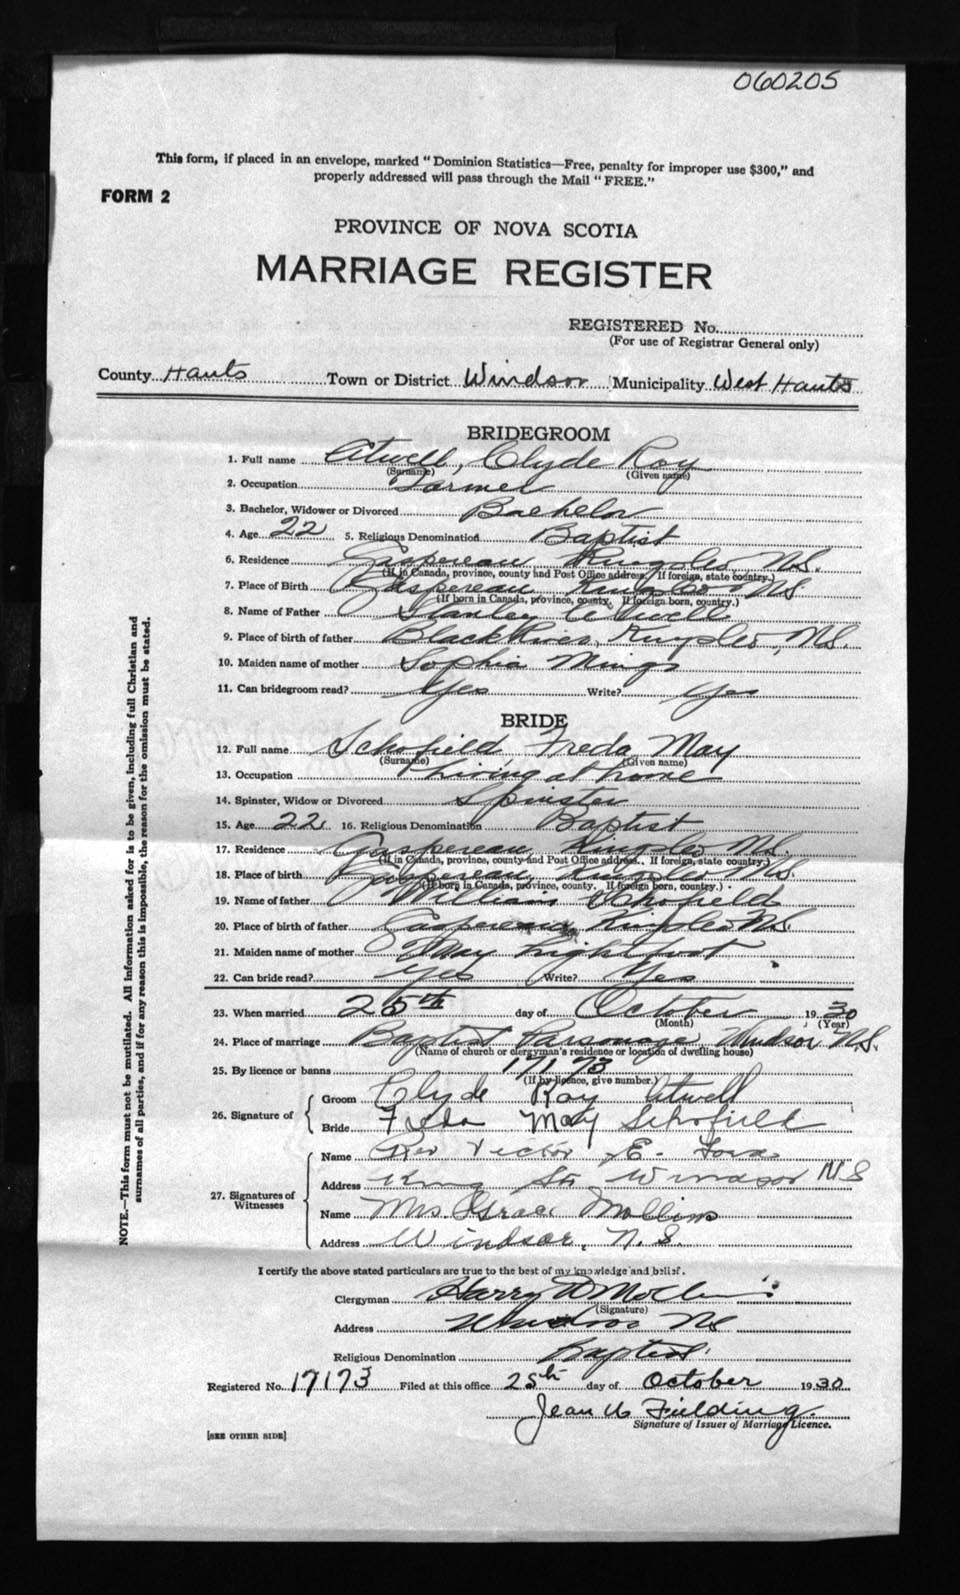 060205
This form, if placed in an envelope, marked "Dominion Statistics—Free, penalty for improper use $300," and
properly addressed will pass through the Mail "FREE."
FORM 2
PROVINCE OF NOVA SCOTIA
MARRIAGE REGISTER
REGISTERED No.
(For use of Registrar General only)
County Hants Town or District Windsor Municipality West Hants
BRIDEGROOM
1. Full name Atwell, Clyde Roy
(Surname) (Given name)
2. Occupation Farmer
3. Bachelor, Widower or Divorced Bachelor
4. Age 22 5. Religious Denomination Baptist
6. Residence Gaspereau Kings Co N.S.
(If in Canada, province, county and Post Office address. If foreign, state country.)
7. Place of Birth Gaspereau Kings Co NS
(If born in Canada, province, county. If foreign born, country.)
8. Name of Father Stanley Atwell
9. Place of birth of father Black River, Kings Co, N.S.
10. Maiden name of mother Sophia
11. Can bridegroom read? Yes Write? Yes
BRIDE
12. Full name Schofield, Freda May
(Surname) (Given name)
13. Occupation Living at home
14. Spinster, Widow or Divorced Spinster
15. Age 22 16. Religious Denomination Baptist
17. Residence Gaspereau Kings Co N.S.
(If in Canada, province, county and Post Office address. If foreign, state country.)
18. Place of birth Gaspereau, Kings Co N.S.
(If born in Canada, province, county. If foreign born, country.)
19. Name of father William Schofield
20. Place of birth of father Gaspereau Kings Co N.S.
21. Maiden name of mother May Lightfoot
22. Can bride read? Yes Write? Yes
23. When married 25th day of October 1930
(Month) (Year)
24. Place of marriage Baptist Parsonage, Windsor N.S.
(Name of church or clergyman's residence or location of dwelling house)
25. By licence or banns 17173
(If by licence, give number.)
26. Signature of Groom Clyde Roy Atwell
Bride Freda May Schofield
27. Signatures of Witnesses Name Rev Victor E.
Address King St Windsor N.S
Name Mrs. Grace Mollins
Address Windsor, N.S.
I certify the above stated particulars are true to the best of my knowledge and belief.
Clergyman Harry
(Signature)
Address Windsor NS
Religious Denomination Baptist
Registered No. 17173 Filed at this office 25th day of October 1930
Jean Fielding
Signature of Issuer of Marriage Licence.
[SEE OTHER SIDE]
NOTE.—This form must not be mutilated. All information asked for is to be given, including full Christian and
surnames of all parties, and if for any reason this is impossible, the reason for the omission must be stated.